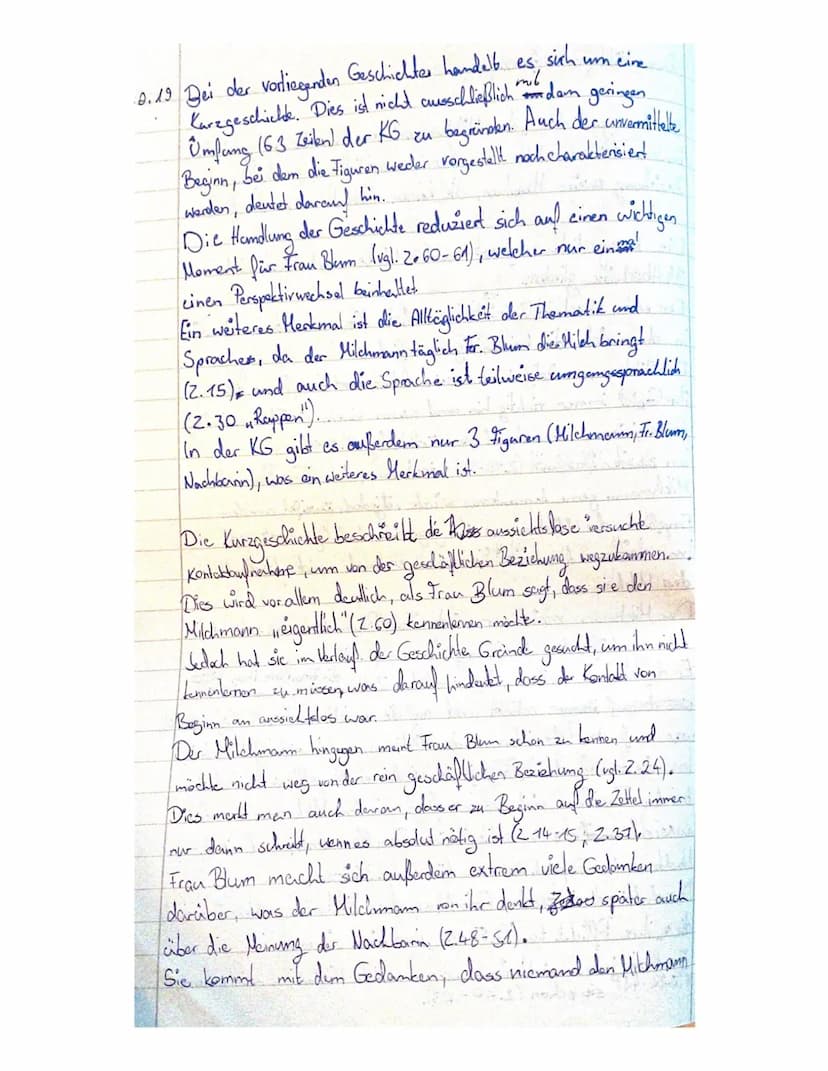 0.19 Bei der vorliegenden Geschichte handelt es sich um eine
Kurzgeschichte. Dies ist nicht ausschließlich mit dem geringen
Umfang (63 Zeilen) der KG zu begründen. Auch der unvermittelte
Beginn, bei dem die Figuren weder vorgestellt noch charakterisiert
werden, deutet darauf hin.
Die Handlung der Geschichte reduziert sich auf einen wichtigen
Moment für Frau Blum (vgl. Z. 60-61), welcher nur einmal
einen Perspektivwechsel beinhaltet.
Ein weiteres Merkmal ist die Alltäglichkeit der Thematik und
Sprache, da der Milchmann täglich Fr. Blum die Milch bringt
(Z. 15) und auch die Sprache ist teilweise umgangssprachlich
(Z. 30 „Rappen").
In der KG gibt es außerdem nur 3 Figuren (Milchmann, Fr. Blum,
Nachbarin), was ein weiteres Merkmal ist.
Die Kurzgeschichte beschreibt die aussichtslose versuchte
Kontaktaufnahme, um von der geschäftlichen Beziehung wegzukommen.
Dies wird vor allem deutlich, als Frau Blum sagt, dass sie den
Milchmann „eigentlich" (Z. 60) kennenlernen möchte.
Jedoch hat sie im Verlauf der Geschichte Gründe gesucht, um ihn nicht
kennenlernen zu müssen, was darauf hindeutet, dass der Kontakt von
Beginn an aussichtslos war.
Der Milchmann hingegen meint Frau Blum schon zu kennen und
möchte nicht weg von der rein geschäftlichen Beziehung (vgl. Z. 24).
Dies merkt man auch daran, dass er zu Beginn auf die Zettel immer
nur dann schreibt, wenn es absolut nötig ist (Z 14-15, Z. 37).
Frau Blum macht sich außerdem extrem viele Gedanken
darüber, was der Milchmann von ihr denkt, später auch
über die Meinung der Nachbarin (Z. 48-51).
Sie kommt mit dem Gedanken, dass niemand den Milchmann